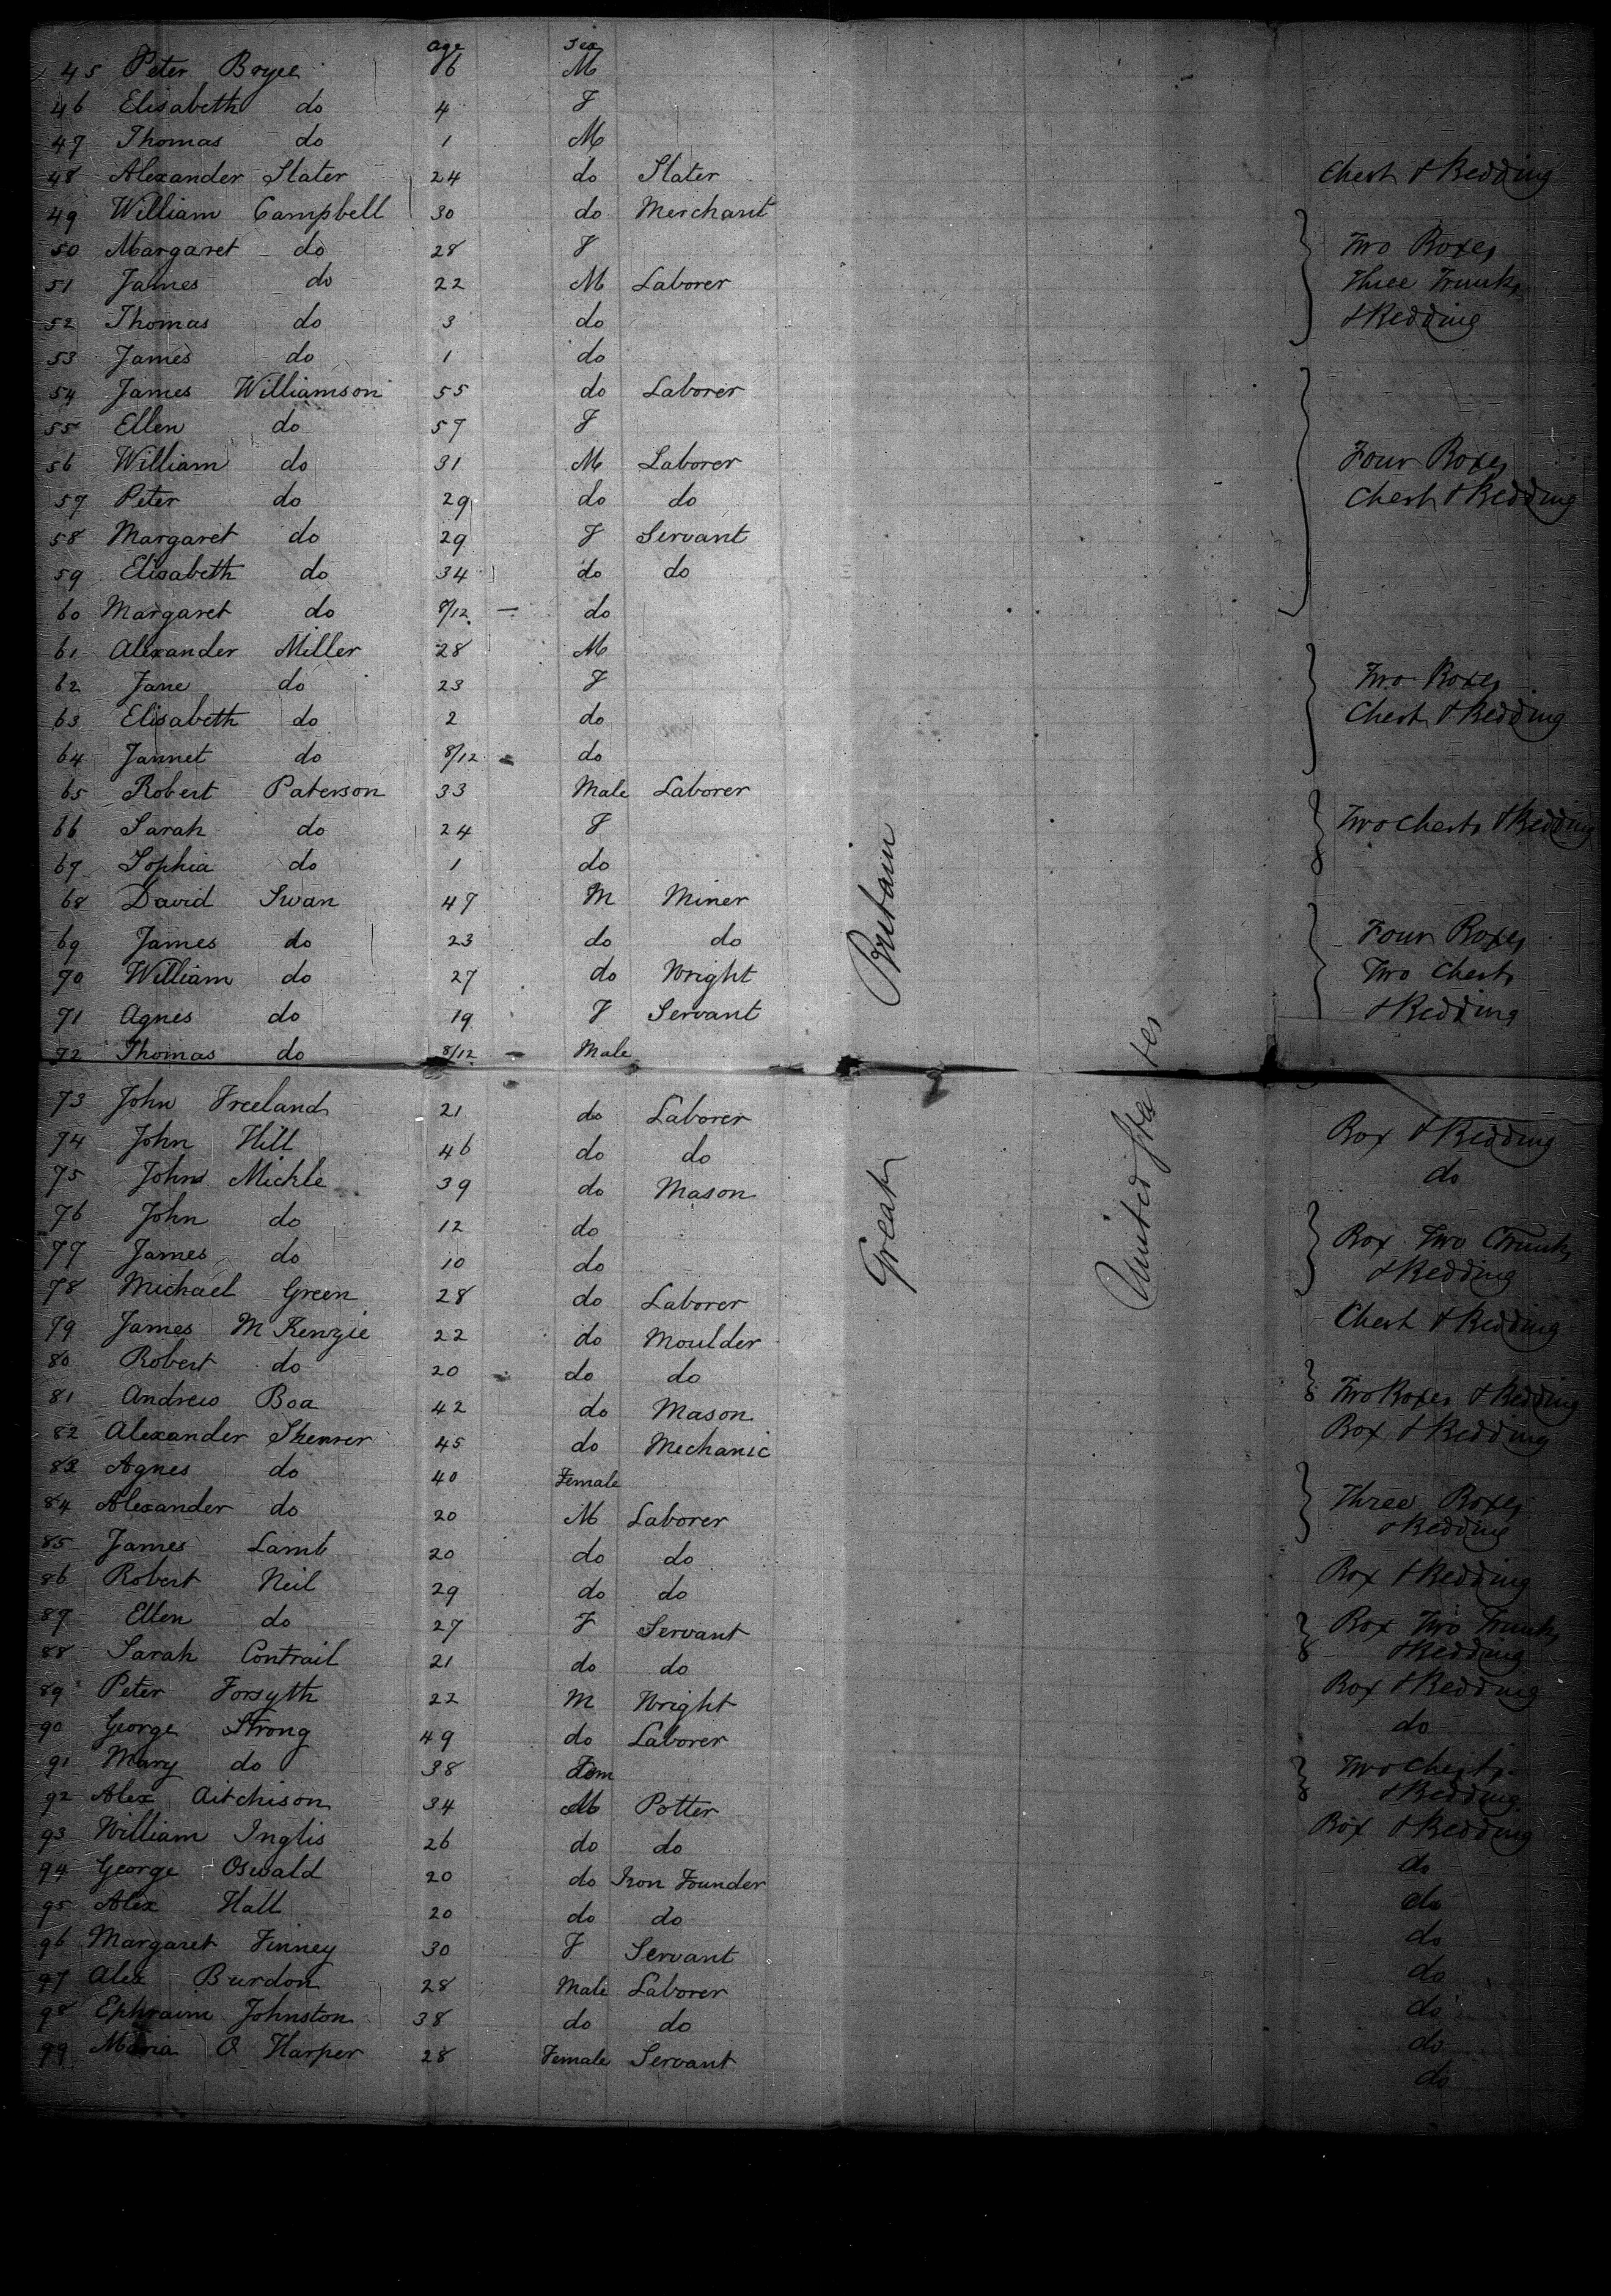 age sex
45 Peter Boyce 6 M
46 Elisabeth do 4 F
47 Thomas do 1 M
48 Alexander Slater 24 do Slater Chest & Bedding
49 William Campbell 30 do Merchant
50 Margaret do 28 F Two Boxes
51 James do 22 M Laborer Three Trunks
52 Thomas do 3 do & Bedding
53 James do 1 do
54 James Williamson 55 do Laborer
55 Ellen do 57 F
56 William do 31 M Laborer Four Boxes
57 Peter do 29 do do Chest & Bedding
58 Margaret do 29 F Servant
59 Elisabeth do 34 do do
60 Margaret do 8/12 — do
61 Alexander Miller 28 M
62 Jane do 23 F Two Boxes
63 Elisabeth do 2 do Chest & Bedding
64 Jannet do 8/12 do
65 Robert Paterson 33 Male Laborer
66 Sarah do 24 F Two Chests & Bedding
67 Sophia do 1 do
68 David Swan 47 M Miner
69 James do 23 do do Four Boxes
70 William do 27 do Wright Two Chests
71 Agnes do 19 F Servant & Bedding
72 Thomas do 8/12 Male
73 John Freeland 21 do Laborer Box & Bedding
74 John Hill 46 do do do
75 John Mickle 39 do Mason
76 John do 12 do Box Two Trunks
77 James do 10 do & Bedding
78 Michael Green 28 do Laborer Chest & Bedding
79 James McKenzie 22 do Moulder
80 Robert do 20 do do Two Boxes & Bedding
81 Andrew Boa 42 do Mason Box & Bedding
82 Alexander 45 do Mechanic
83 Agnes do 40 Female Three Boxes
84 Alexander do 20 M Laborer & Bedding
85 James Lamb 20 do do Box & Bedding
86 Robert Neil 29 do do Box Two Trunks
87 Ellen do 27 F Servant & Bedding
88 Sarah Contrail 21 do do Box & Bedding
89 Peter Forsyth 22 M Wright do
90 George Strong 49 do Laborer Two Chests
91 Mary do 38 Fem & Bedding
92 Alex Aitchison 34 M Potter Box & Bedding
93 William Inglis 26 do do do
94 George Oswald 20 do Iron Founder do
95 Alex Hall 20 do do do
96 Margaret Finney 30 F Servant do
97 Alex Burdon 28 Male Laborer do
98 Ephraim Johnston 38 do do do
99 Maria O Harper 28 Female Servant do
Great Britain
United States